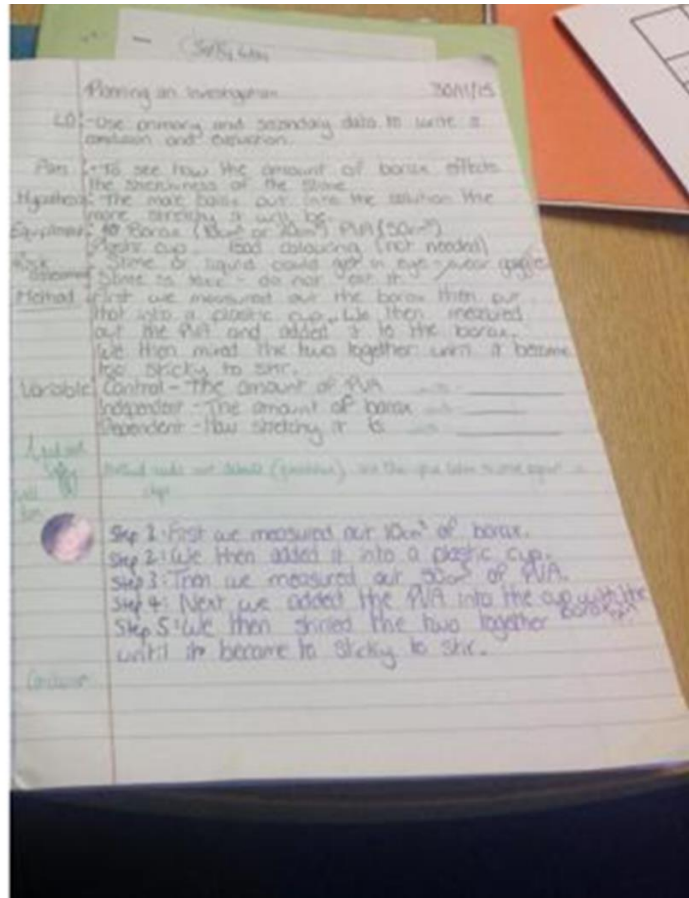 Planning an investigation 30/11/15
LO:-Use primary and secondary data to write a
conclusion and evaluation.
Aim :-To see how the amount of borax effects
the of the slime.
Hypothesis: The more borax put into the solution the
more stretchy it will be.
Equipment: Borax (10cm³ or 20cm³) PVA (50cm³)
Plastic cup. food colouring (not needed)
Slime or liquid could get in eye - wear goggles
Slime is toxic - do not eat it
Method First we measured out the borax then put
that into a plastic cup. We then measured
out the PVA and added it to the borax.
We then mixed the two together until it became
too sticky to stir.
Variable Control - The amount of PVA
Independent - The amount of borax
Dependent - How stretchy it is
Method needs more details
steps
Step 1: First we measured out 10cm³ of borax.
Step 2: We then added it into a plastic cup.
Step 3: Then we measured out 50cm³ of PVA.
Step 4: Next we added the PVA into the cup with the
borax in
Step 5: We then stirred the two together
until it became to sticky to stir.